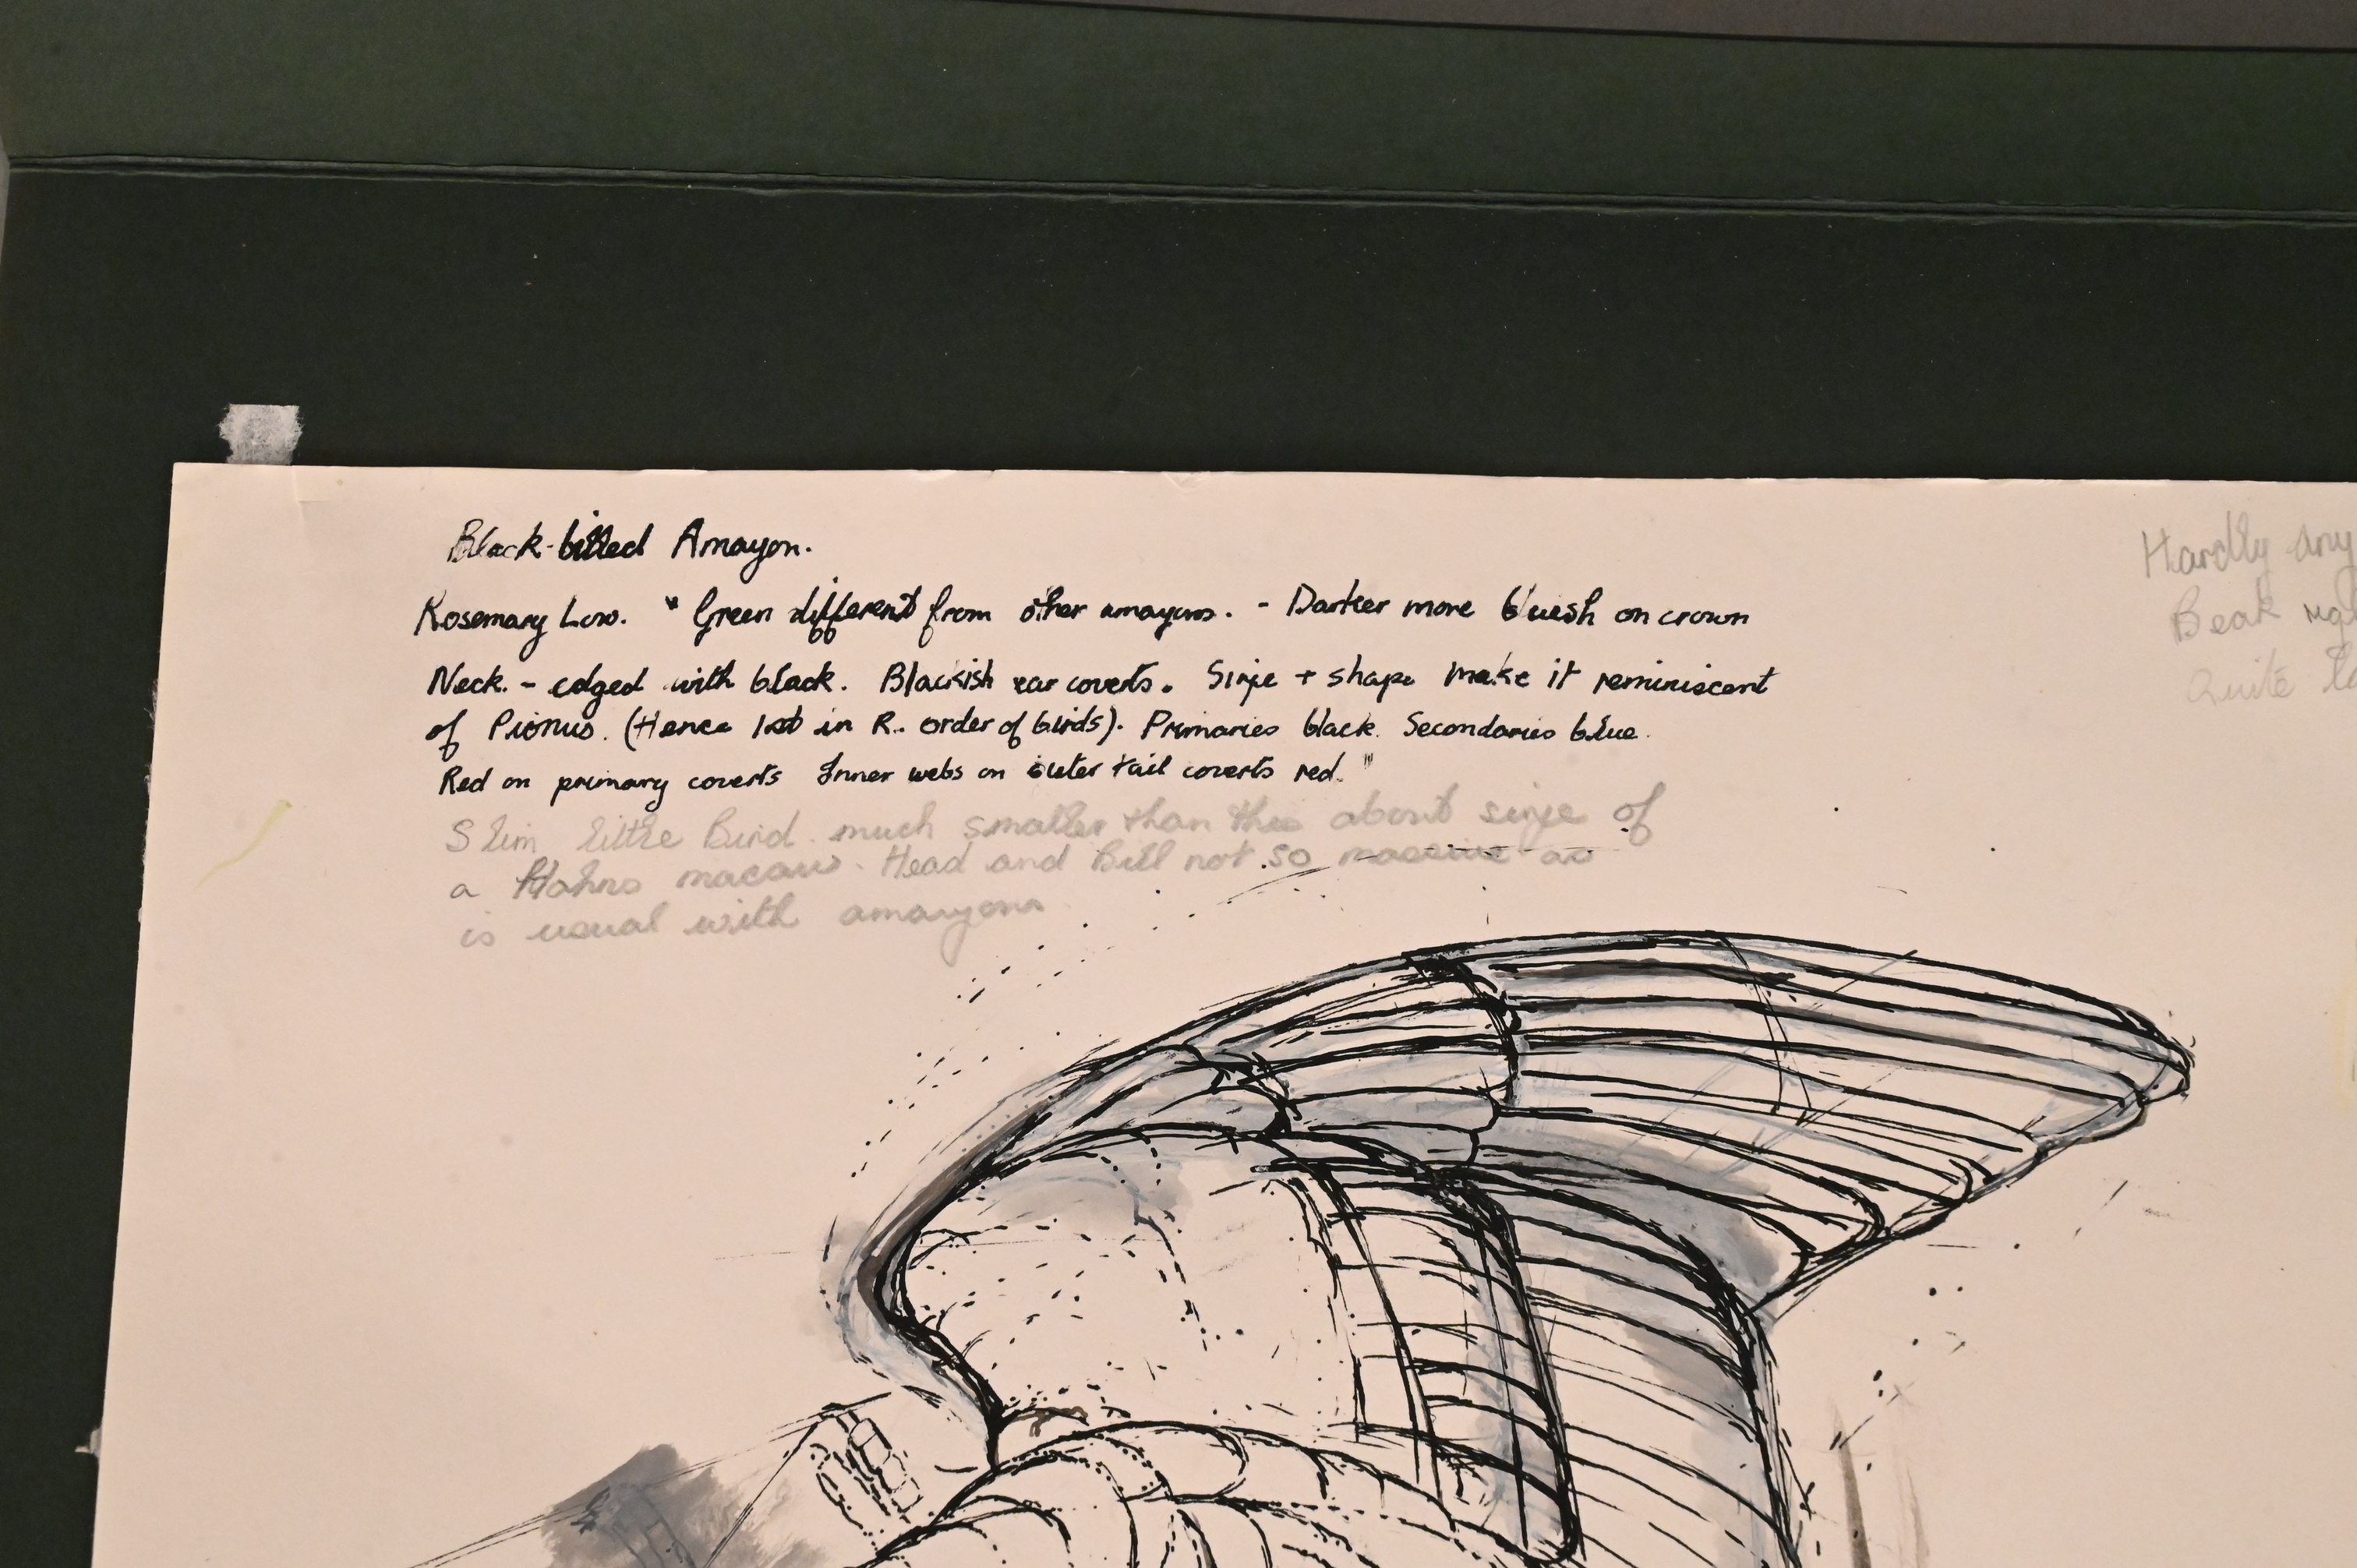 Black-billed Amazon.
Rosemary Low. " Green different from other amazons. - Darker more bluish on crown
Neck. - edged with black. Blackish ear coverts. Size + shape make it reminiscent
of Pionus. (Hence 1st in R. order of birds). Primaries black. Secondaries blue.
Red on primary coverts Inner webs on outer tail coverts red."
Slim little Bird. much smaller than this about size of
a Hahns macaw. Head and Bill not so massive as
is usual with amazons
Hardly any
Beak
Quite